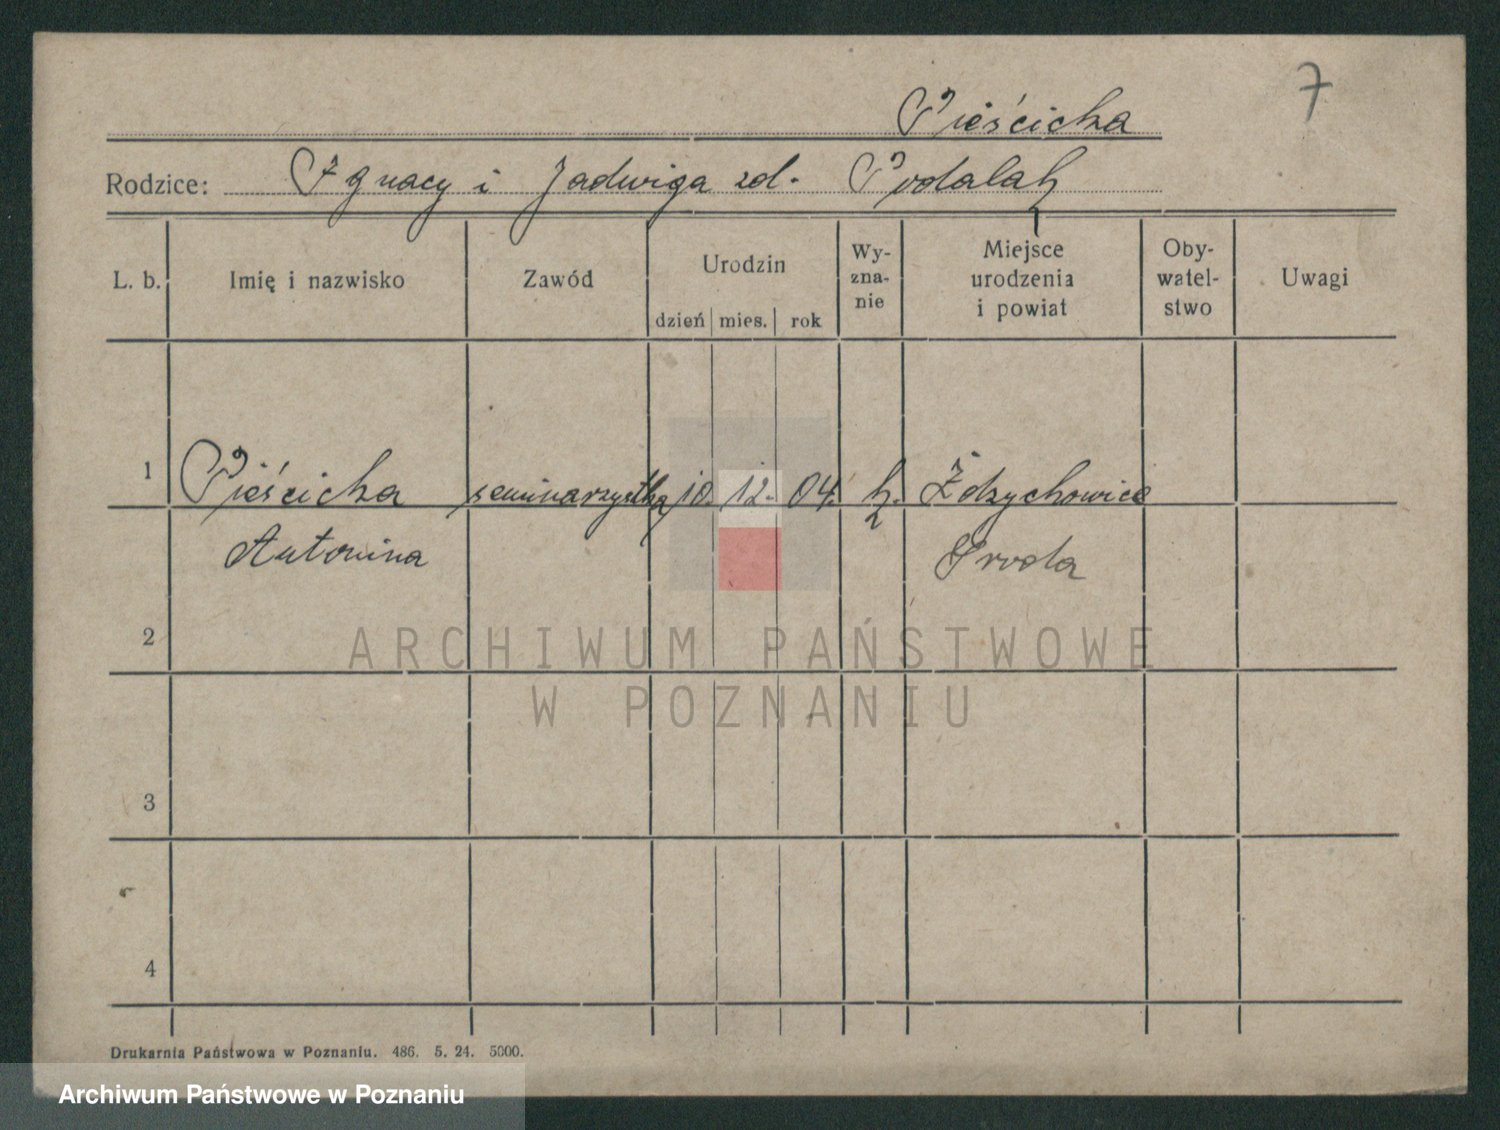 7
Pieścicka
Rodzice: Ignacy i Jadwiga zd. Podalak
L. b. Imię i nazwisko Zawód Urodzin dzień mies. rok Wy-zna-nie Miejsce urodzenia i powiat Oby-watel-stwo Uwagi
1 Pieścicka seminarzystka 10. 12. 04. k. Żdzychowice
Antonina Środa
2
ARCHIWUM PAŃSTWOWE
W POZNANIU
3
4
Drukarnia Państwowa w Poznaniu. 486. 5. 24. 5000.
Archiwum Państwowe w Poznaniu